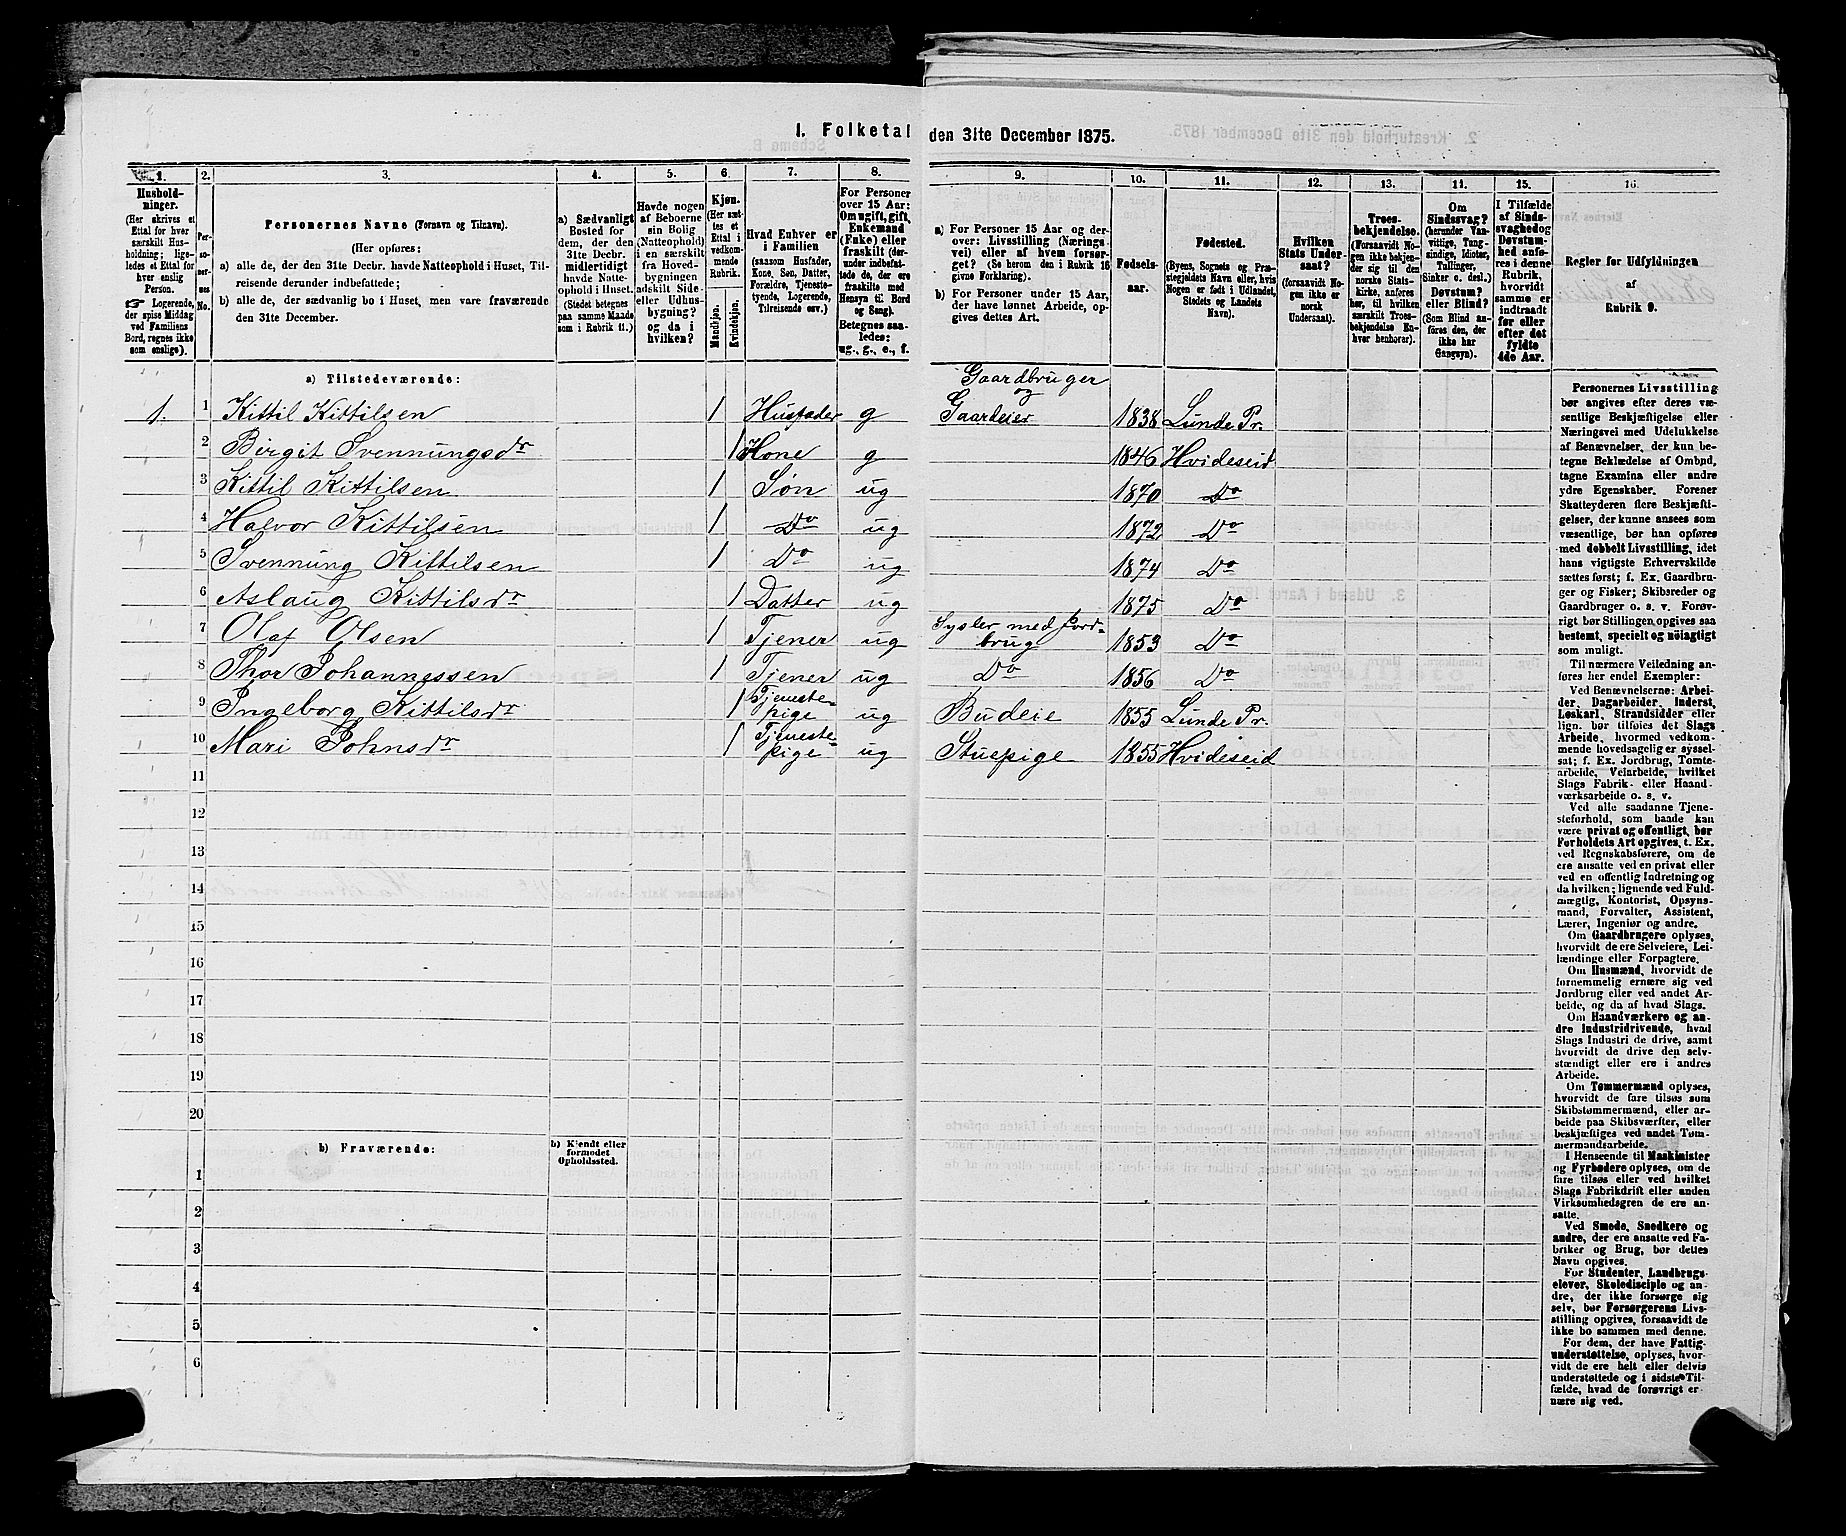 1. Folketal den 31te December 1875.
1.
2.
3.
4.
5.
6.
7.
8.
9.
10.
11.
12.
13.
14.
15.
16.
Husholdninger.
(Her skrives et
Ettal for hver
særskilt Husholdning;
ligeledes et Ettal for
hver enslig
Person.
☞ Logerende,
der spise Middag
ved Familiens
Bord, regnes ikke
som enslige).
Personernes No.
Personernes Navne (Fornavn og Tilnavn).
(Her opføres:
a) alle de, der den 31te Decbr. havde Natteophold i Huset, Tilreisende
derunder indbefattede;
b) alle de, der sædvanlig bo i Huset, men vare fraværende
den 31te December.
a) Sædvanligt
Bosted for
dem, der den
31te Decbr.
midlertidigt
havde Natteophold
i Huset.
(Stedet betegnes
paa samme Maade
som i Rubrik 11.)
Havde nogen
af Beboerne
sin Bolig
(Natteophold)
i en særskilt
fra Hovedbygningen
adskilt Side-
eller Udhusbygning?
og da i
hvilken?
Kjøn.
(Her sættes
et
Ettal i
vedkommende
Rubrik.
Mandkjøn.
Kvindekjøn.
Hvad Enhver er
i Familien
(saasom Husfader,
Kone, Søn, Datter,
Forældre, Tjenestetyende,
Logerende,
Tilreisende osv.)
For Personer
over 15 Aar:
Om ugift, gift,
Enkemand
(Enke) eller
fraskilt (derunder
indbefattede,
de, der ere
fraskilte med
Hensyn til Bord
og Seng).
Betegnes saaledes:
ug., g., e., f.
a) For Personer 15 Aar og derover:
Livsstilling (Næringsvei)
eller af hvem forsørget?
(Se herom den i Rubrik 16
givne Forklaring).
b) For Personer under 15 Aar,
der have lønnet Arbeide, opgives
dettes Art.
Fødselsaar.
Fødested.
(Byens, Sognets og Præstegjeldets
Navn eller, hvis
Nogen er født i Udlandet,
Stedets og Landets
Navn).
Hvilken
Stats Undersaat?
(forsaavidt Nogen
ikke er
norsk
Undersaat).
Troesbekjendelse.
(Forsaavidt Nogen
ikke bekjender
sig til den
norske Statskirke,
anføres
her, til hvilken
særskilt Troesbekjendelse
Enhver
henhører).
Om
Sindssvag?
(herunder Vanvittige,
Tungsindige,
Idioter,
Tullinger,
Sinker o. desl.)
Døvstum?
eller Blind?
(Som Blind anføres
den, der
ikke har
Gangsyn).
I Tilfælde
af Sindssvaghed
og
Døvstumhed
anføres
i denne
Rubrik,
hvorvidt
samme er
indtraadt
før eller
efter det
fyldte
4de Aar.
Regler for Udfyldningen
af
Rubrik 9.
a) Tilstedeværende:
1. 1 Kittil Kittilsen 1 Husfader g Gaardbruger og Gaardeier 1838 Lunde Pr.
2 Birgit Svennungsdr 1 Kone g 1846 Hvideseid
3 Kittil Kittilsen 1 Søn ug 1870 Do
4 Halvor Kittilsen 1 Do ug 1872 Do
5 Svennung Kittilsen 1 Do ug 1874 Do
6 Aslaug Kittilsdr 1 Datter ug 1875 Do
7 Olaf Olsen 1 Tjener ug Sysler med Jordbrug 1853 Do
8 Thor Johannessen 1 Tjener ug Do 1856 Do
9 Ingeborg Kittilsdr 1 Tjenestepige ug Budeie 1855 Lunde Pr.
10 Mari Johnsdr 1 Tjenestepige ug Stuepige 1855 Hvideseid
11
12
13
14
15
16
17
18
19
20
b) Fraværende:
b) Kjendt eller
formodet
Opholdssted.
1
2
3
4
5
6
Personernes Livsstilling
bør angives efter deres væsentlige
Beskjæftigelse eller
Næringsvei med Udelukkelse
af Benævnelser, der kun betegne
Beklædelse af Ombud,
tagne Examina eller andre
ydre Egenskaber. Forener
Skatteyderen flere Beskjæftigelser,
der kunne ansees som
væsentlige, bør han opføres
med dobbelt Livsstilling, idet
hans vigtigste Erhvervskilde
sættes først; f. Ex. Gaardbruger
og Fisker; Skibsreder og
Gaardbruger o. s. v. Forøvrigt
bør Stillingen opgives saa
bestemt, specielt og nöiagtigt
som muligt.
Til nærmere Veiledning anføres
her endel Exempler:
Ved Benævnelserne: Arbeider,
Dagarbeider, Inderst,
Løskarl, Strandsidder eller
lign. bør tilføies det Slags
Arbeide, hvormed vedkommende
hovedsagelig er sysselsat;
f. Ex. Jordbrug, Tomtearbeide,
Veiarbeide, hvilket
Slags Fabrik- eller Haandværksarbeide
o. s. v.
Ved alle saadanne Tjenesteforhold,
som baade kan
være privat og offentligt, bør
Forholdets Art opgives, t. Ex.
ved Regnskabsførere, om de
ere ansatte ved en privat eller
ved en offentlig Indretning og
da hvilken; lignende ved Fuldmægtig,
Kontorist, Opsynsmand,
Forvalter, Assistent,
Lærer, Ingeniør og andre.
Om Gaardbrugere oplyses,
hvorvidt de ere Selveiere, Leilændinge
eller Forpagtere.
Om Husmænd, hvorvidt de
fornemmelig ernære sig ved
Jordbrug eller ved andet Arbeide,
og da af hvad Slags.
Om Haandværkere og andre
Industridrivende, hvad
Slags Industri de drive, samt
hvorvidt de drive den selvstændigt
eller ere i andres
Arbeide.
Om Tømmermænd oplyses,
hvorvidt de fare tilsøs som
Skibstømmermænd, eller arbeide
paa Skibsværfter, eller
beskjæftiges ved andet Tømmermandsarbeide.
I Henseende til Maskinister
og Fyrbødere oplyses, om de
fare tilsøs eller ved hvilket
Slags Fabrikdrift eller anden
Virksomhedsgren de ere ansatte.
Ved Smede, Snedkere og
andre, der ere ansatte ved Fabriker
og Brug, bør dettes
Navn opgives.
For Studenter, Landbrugselever,
Skoledisciple og andre,
der ikke forsørge sig
selv, bør Forsørgerens Livsstilling
opgives, forsaavidt de
ikke bo sammen med denne.
For dem, der have Fattigunderstøttelse,
oplyses, hvorvidt
de ere helt eller delvis
understøttede og i sidste Tilfælde,
hvad de forøvrigt ernære
sig ved.